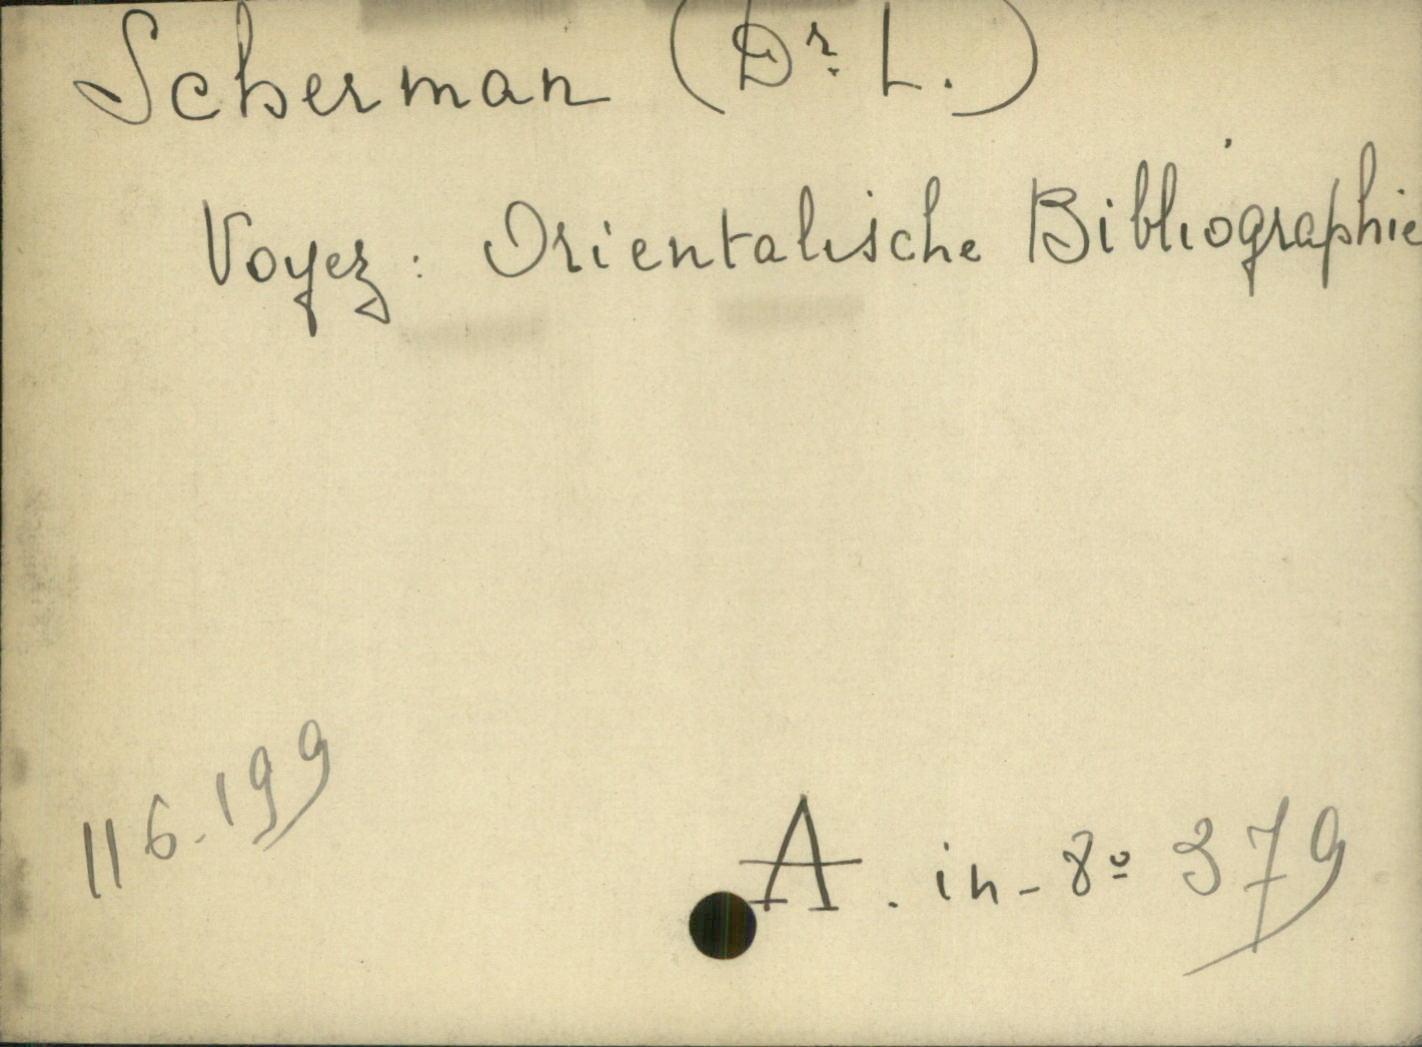 Scherman (Dr. L.)
Voyez : Orientalische Bibliographie
116.199
A. in-8º 379